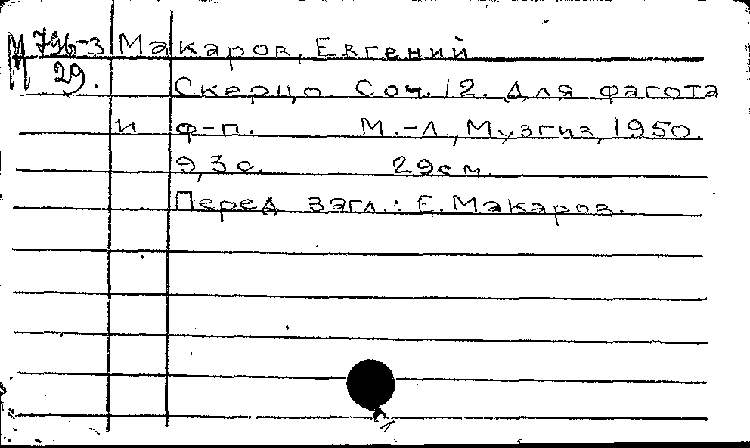 М 796-3 Макаров, Евгений
29. Скерцо. Соч. 12. Для фагота
и ф-п. М.-Л, Музгиз, 1950.
9, 3 с. 29 см.
Перед загл.: Е. Макаров.